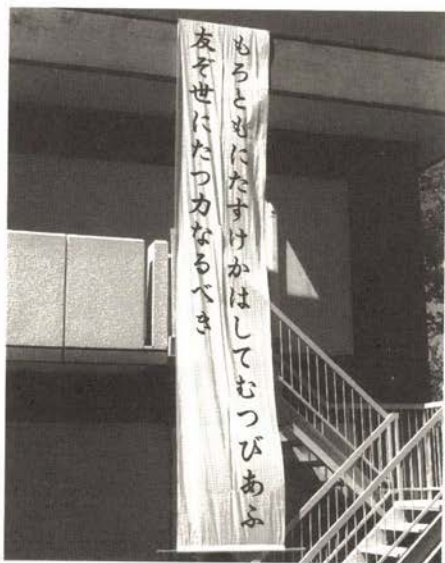 もろともにたすけかはしてむつびあふ
友ぞ世にたつ力なるべき